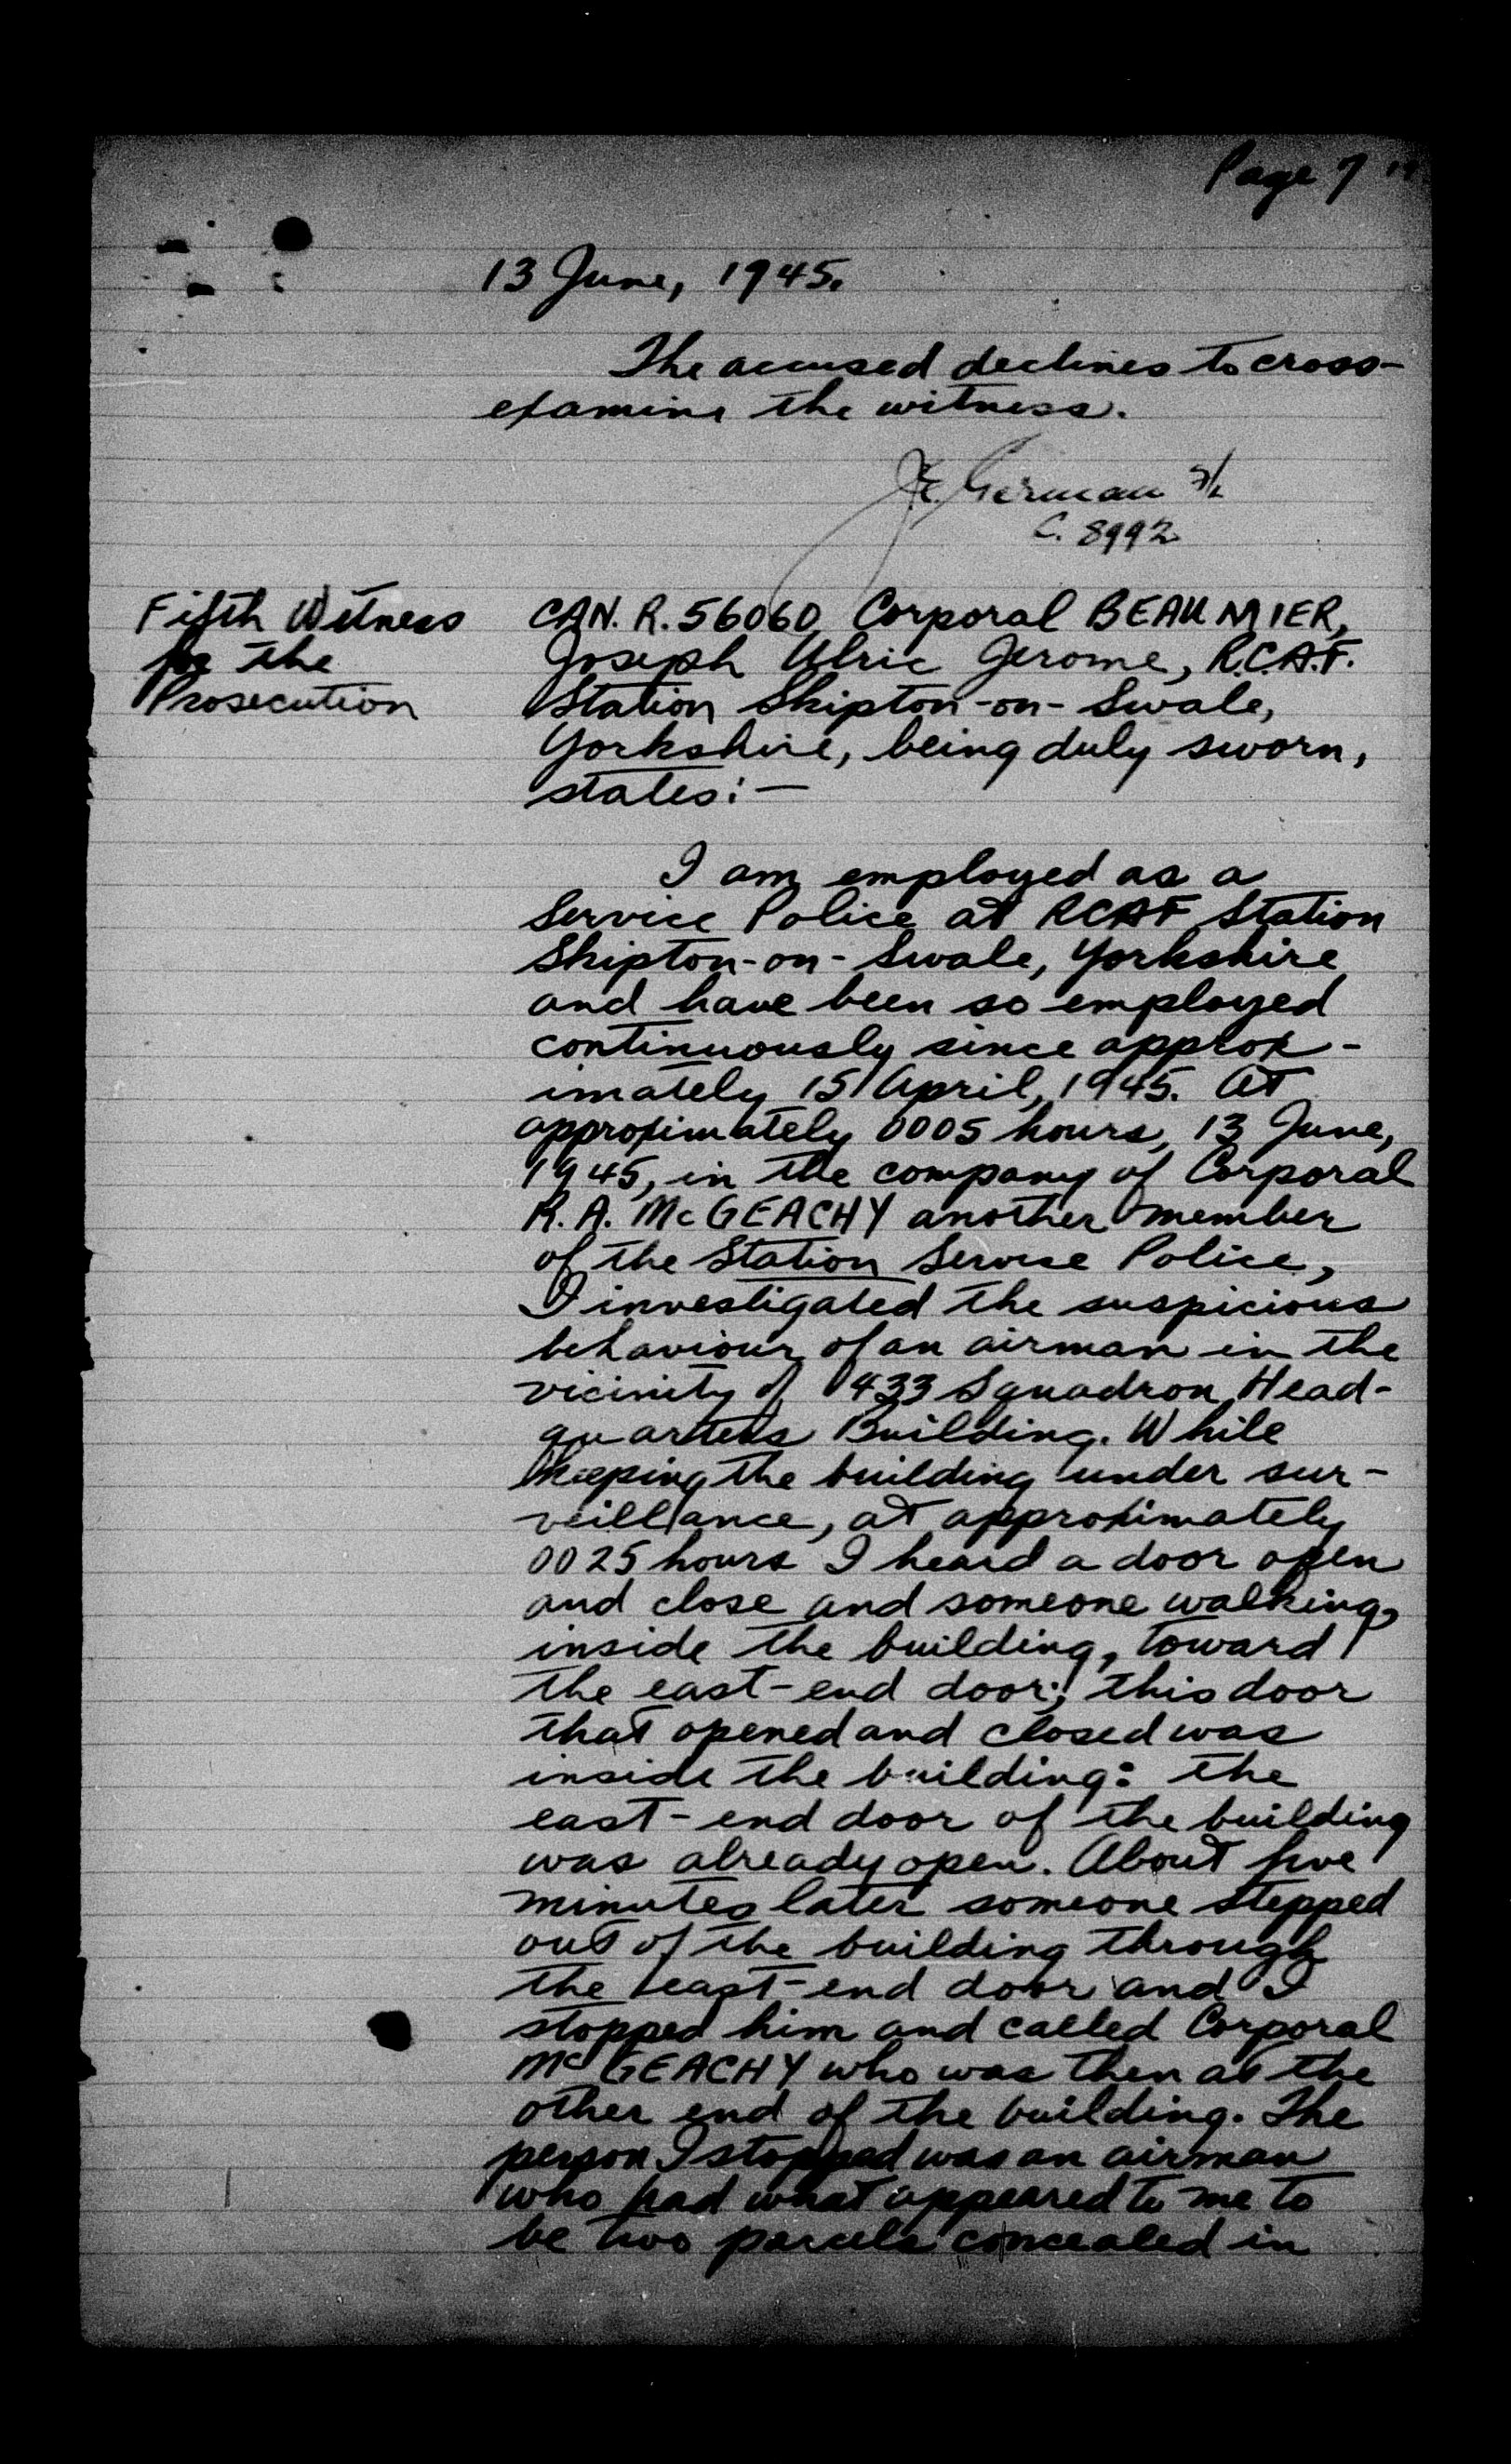 Page 7
13 June, 1945.
The accused declines to cross-
examine the witness.
J.E. German F/L
C. 8992
Fifth Witness
for the
Prosecution
CAN. R. 56060 Corporal BEAUMIER,
Joseph Ulric Jerome, R.C.A.F.
Station Skipton-on-Swale,
Yorkshire, being duly sworn,
states:—
I am employed as a
Service Police at RCAF Station
Skipton-on-Swale, Yorkshire
and have been so employed
continuously since approx-
imately 15 April, 1945. At
approximately 0005 hours, 13 June,
1945, in the company of Corporal
R. A. McGEACHY another member
of the Station Service Police,
I investigated the suspicious
behaviour of an airman in the
vicinity of 433 Squadron Head-
quarters Building. While
keeping the building under sur-
veillance, at approximately
0025 hours I heard a door open
and close and someone walking,
inside the building, toward
the east-end door; this door
that opened and closed was
inside the building: the
east-end door of the building
was already open. About five
minutes later someone stepped
out of the building through
the east-end door and I
stopped him and called Corporal
McGEACHY who was then at the
other end of the building. The
person I stopped was an airman
who had what appeared to me to
be two parcels concealed in